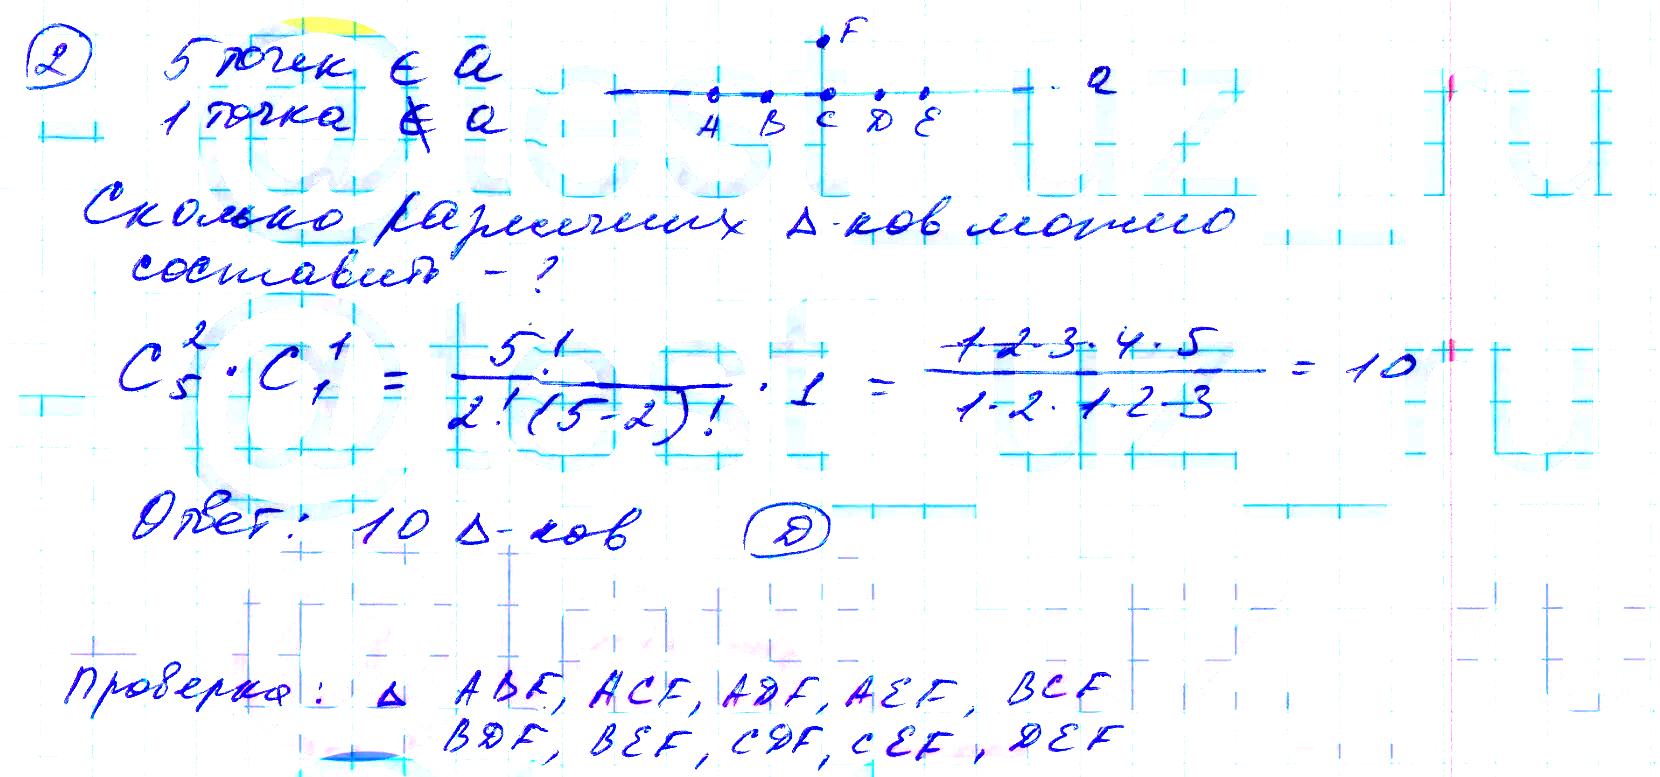 2 5 точек ∈ a
1 точка ∉ a
F
a
A B C D E
Сколько различных Δ-ков можно
составить - ?
C₅² · C₁¹ = 5! / 2! (5-2)! · 1 = 1·2·3·4·5 / 1·2·1·2·3 = 10
Ответ: 10 Δ-ков D
Проверка: Δ ABF, ACF, ADF, AEF, BCF
BDF, BEF, CDF, CEF, DEF
@test uz ru
@test uz ru